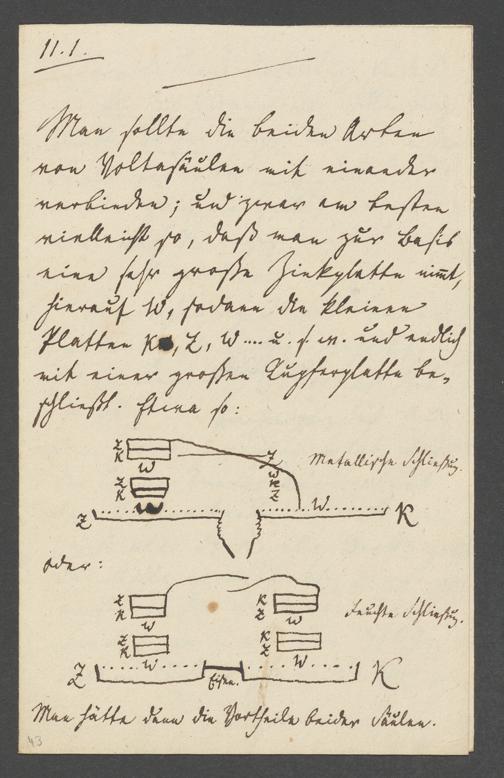 11.1.
Man sollte die beiden Arten
von Voltasäulen mit einander
verbinden; und zwar am besten
vielleicht so, daß man zur Basis
eine sehr große Zinkplatte nimt,
hierauf W, sodann die kleinen
Platten K, Z, W.... u. s. w. und endlich
mit einer großen Kupferplatte be-
schließt. Etwa so:
Z
K
W
Z
K
W
Z
Z
W
K
Z
W
K
Metallische Schließung.
oder:
Z
K
W
Z
K
W
Z
K
Z
W
K
Z
W
K
Feuchte Schließung.
Eisen.
Man hätte dann die Vortheile beider Säulen.
43